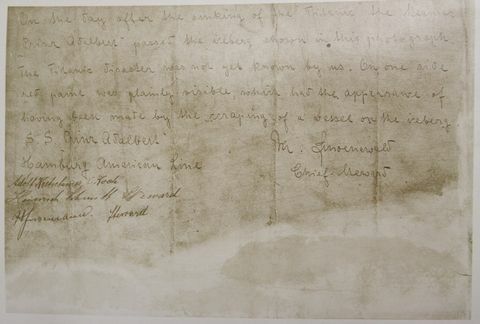 On the day after the sinking of the Titanic the steamer
Prinz Adalbert passed the iceberg shown in this photograph
The Titanic disaster was not yet known by us. On one side
red paint was plainly visible, which had the appearance of
having been made by the scraping of a vessel on the iceberg
S.S. Prinz Adalbert
Mr. Linoenewald
Hamburg American Line
Chief Steward
I. Koch
Steward
Steward